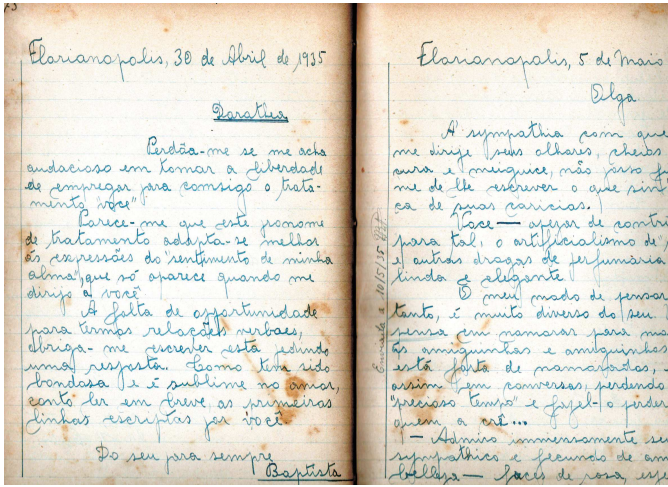 73
Florianopolis, 30 de Abril de 1935
Dorathea
Perdôa-me se me acha
audacioso em tomar a liberdade
de empregar para comsigo o trata-
mento "você"
Parece-me que este pronome
de tratamento adapta-se melhor
ás expressões do "sentimento de minha
alma", que só aparece quando me
dirijo a você
A falta de opportunidade
para termos relações verbaes,
obriga-me escrever esta pedindo
uma resposta. Como tem sido
bondosa e é sublime no amor,
conto ler em breve, as primeiras
linhas escriptas por você.
Do seu para sempre
Baptista
Florianopolis, 5 de Maio
Olga
A' sympathia com que
me dirije seus olhares, cheios
cura e meiguice, não posso
me de lhe escrever o que sin
ça de suas caricias.
Voce — apezar de contri
para tal, o artificialismo de
e outras drogas de perfumaria
linda e elegante
O meu modo de pensar
tanto, é muito diverso do seu.
pensa em namorar para
ás amiguinhas e amiguinhos
está farta de namorados,
assim em conversas, perdendo
"precioso tempo" e fazel-o perder
quem a crê...
— Admiro immensamente se
sympathico e fecundo de am
belleza — faces de rosa,
Enviada a 10/5/35